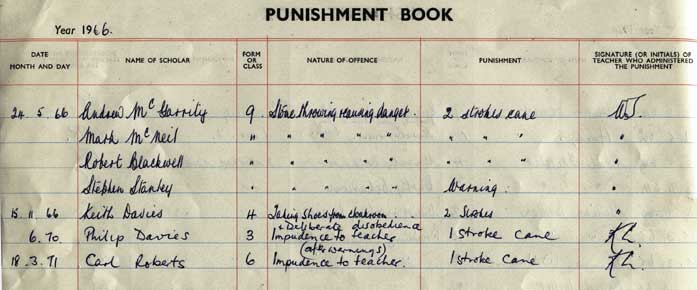 PUNISHMENT BOOK
Year 1966.
DATE MONTH AND DAY NAME OF SCHOLAR FORM OR CLASS NATURE-OF-OFFENCE PUNISHMENT SIGNATURE (OR INITIALS) OF TEACHER WHO ADMINISTERED THE PUNISHMENT
24. 5. 66 Andrew McGarrity 9 Stone throwing danger. 2 strokes cane
Mark McNeil " " " " " " " " "
Robert Blackwell " " " " " " " " "
Stephen Stanley " " " " " Warning. "
15. 11. 66 Keith Davies 4 Taking shoes from cloakroom. 2 Strokes "
+ Deliberate disobedience
6. 70. Philip Davies 3 Impudence to teacher 1 stroke cane
(after warnings)
18. 3. 71 Carl Roberts 6 Impudence to teacher. 1 stroke cane